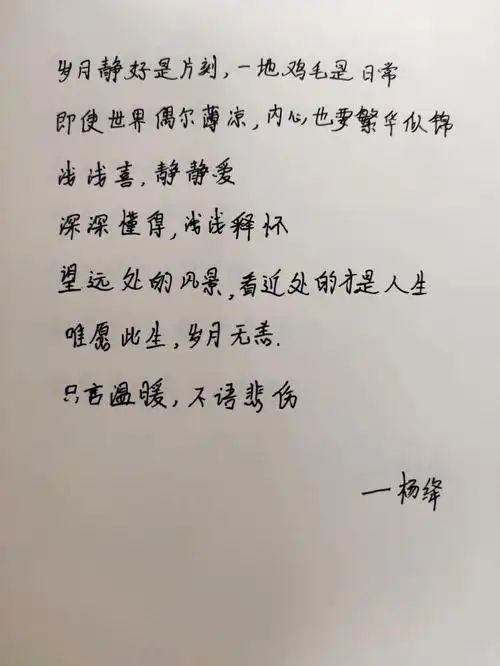 岁月静好是片刻，一地鸡毛是日常
即使世界偶尔薄凉，内心也要繁华似锦
浅浅喜，静静爱
深深懂得，浅浅释怀
望远处的风景，看近处的才是人生
唯愿此生，岁月无恙.
只言温暖，不语悲伤
—杨绛